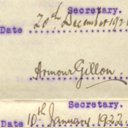 Secretary.
Date 20th December 192
Armour Gillon
Secretary.
Date 10th January. 1922.